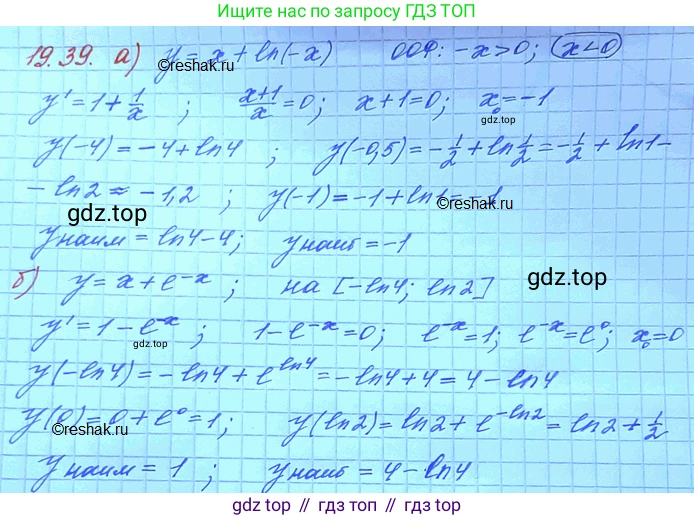 Ищите нас по запросу ГДЗ ТОП
19.39. а) y = x + ln(-x) ООФ: -x>0; x<0
©reshak.ru
y' = 1 + 1/x ; (x+1)/x = 0; x+1=0; x₀=-1
gdz.top
y(-4) = -4 + ln4 ; y(-0,5) = -1/2 + ln 1/2 = -1/2 + ln1 -
- ln2 ≈ -1,2 ; y(-1) = -1 + ln1 = -1
©reshak.ru
gdz.top
yнаим = ln4-4; yнаиб = -1
б) y = x + e^-x ; на [-ln4; ln2]
gdz.top
y' = 1 - e^-x ; 1 - e^-x = 0; e^-x = 1; e^-x = e^0; x₀=0
gdz.top
y(-ln4) = -ln4 + e^ln4 = -ln4 + 4 = 4 - ln4
y(0) = 0 + e^0 = 1; y(ln2) = ln2 + e^-ln2 = ln2 + 1/2
©reshak.ru
yнаим = 1 ; yнаиб = 4 - ln4
gdz top // гдз топ // gdz.top